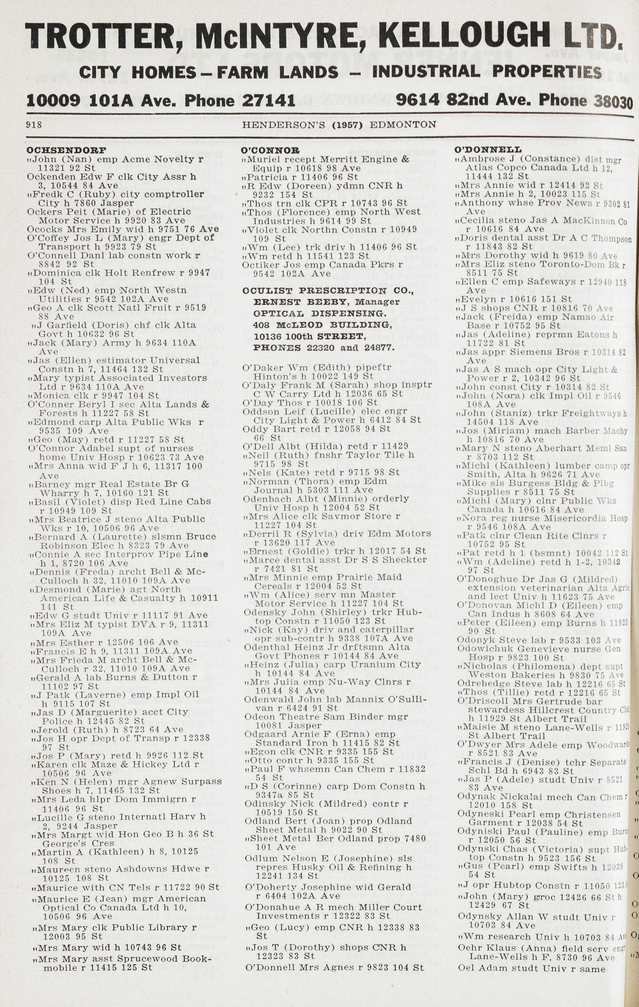 TROTTER, McINTYRE, KELLOUGH LTD.
CITY HOMES – FARM LANDS – INDUSTRIAL PROPERTIES
10009 101A Ave. Phone 27141 9614 82nd Ave. Phone 38030
918 HENDERSON'S (1957) EDMONTON
OCHSENDORF
"John (Nan) emp Acme Novelty r
11321 92 St
Ockenden Edw F clk City Assr h
3, 10544 84 Ave
"Fredk C (Ruby) city comptroller
City h 7860 Jasper
Ockers Peit (Marie) of Electric
Motor Service h 9920 83 Ave
Ococks Mrs Emily wid h 9751 76 Ave
O'Coffey Jos L (Mary) engr Dept of
Transport h 9923 79 St
O'Connell Danl lab constn work r
8842 92 St
"Dominica clk Holt Renfrew r 9947
104 St
"Edw (Ned) emp North Westn
Utilities r 9542 102A Ave
"Geo A clk Scott Natl Fruit r 9519
88 Ave
"J Garfield (Doris) chf clk Alta
Govt h 10632 96 St
"Jack (Mary) Army h 9634 110A
Ave
"Jas (Ellen) estimator Universal
Constn h 7, 11464 132 St
"Mary typist Associated Investors
Ltd r 9634 110A Ave
"Monica clk r 9947 104 St
O'Conner Beryl I sec Alta Lands &
Forests h 11227 58 St
"Edmond carp Alta Public Wks r
9535 109 Ave
"Geo (May) petd r 11227 58 St
O'Connor Adabel supt of nurses
home Univ Hosp r 10623 73 Ave
"Mrs Anna wid F J h 6, 11317 100
Ave
"Barney mgr Real Estate Br G
Wharry h 7, 10160 121 St
"Basil (Violet) disp Red Line Cabs
r 10949 109 St
"Mrs Beatrice J steno Alta Public
Wks r 10, 10506 96 Ave
"Bernard A (Laurette) slsmn Bruce
Robinson Elec h 8323 79 Ave
"Connie A sec Interprov Pipe Line
h 1, 8720 106 Ave
"Dennis (Freda) archt Bell & Mc-
Culloch h 32, 11010 109A Ave
"Desmond (Marie) agt North
American Life & Casualty h 10911
141 St
"Edw G studt Univ r 11117 91 Ave
"Mrs Eliz M typist DVA r 9, 11311
109A Ave
"Mrs Esther r 12506 106 Ave
"Francis E h 9, 11311 109A Ave
"Mrs Frieda M archt Bell & Mc-
Culloch h 32, 11010 109A Ave
"Gerald A lab Burns & Dutton r
11102 97 St
"J Patk (Laverne) emp Impl Oil
h 9115 107 St
"Jas D (Marguerite) acct City
Police h 12445 82 St
"Jerold (Ruth) h 8723 64 Ave
"Jos H opr Dept of Transp r 12338
97 St
"Jos P (Mary) retd h 9926 112 St
"Karen clk Maze & Hickey Ltd r
10506 96 Ave
"Ken N (Helen) mgr Agnew Surpass
Shoes h 7, 11465 132 St
"Mrs Leda hlpr Dom Immigrn r
11406 96 St
"Lucille G steno Internatl Harv h
2, 9244 Jasper
"Mrs Margt wid Hon Geo B h 36 St
George's Cres
"Martin A (Kathleen) h 8, 10125
108 St
"Maureen steno Ashdowns Hdwe r
10125 108 St
"Maurice with CN Tels r 11722 90 St
"Maurice E (Jean) mgr American
Optical Co Canada Ltd h 10,
10506 96 Ave
"Mrs Mary clk Public Library r
12003 95 St
"Mrs Mary wid h 10743 96 St
"Mrs Mary asst Sprucewood Book-
mobile r 11415 125 St
O'CONNOR
"Muriel recept Merritt Engine &
Equip r 10618 98 Ave
"Patricia r 11406 96 St
"R Edw (Doreen) ydmn CNR h
9232 154 St
"Thos trn clk CPR r 10743 96 St
"Thos (Florence) emp North West
Industries h 9614 99 St
"Violet clk Northn Constn r 10949
109 St
"Wm (Lee) trk driv h 11406 96 St
"Wm retd h 11541 123 St
Octiker Jos emp Canada Pkrs r
9542 102A Ave
OCULIST PRESCRIPTION CO.,
ERNEST BEEBY, Manager
OPTICAL DISPENSING.
408 McLEOD BUILDING,
10136 100th STREET,
PHONES 22320 and 24877.
O'Daker Wm (Edith) pipeftr
Hinton's h 10022 149 St
O'Daly Frank M (Sarah) shop insptr
C W Carry Ltd h 12036 65 St
O'Day Thos r 10018 106 St
Oddson Leif (Lucille) elec engr
City Light & Power h 6412 84 St
Oddy Bart retd r 12058 94 St
66 St
O'Dell Albt (Hilda) retd r 11429
"Neil (Ruth) fnshr Taylor Tile h
9715 98 St
"Nels (Kate) retd r 9715 98 St
"Norman (Thora) emp Edm
Journal h 5303 111 Ave
Odenbach Albt (Minnie) orderly
Univ Hosp h 12004 52 St
"Mrs Alice clk Savmor Store r
11227 104 St
"Derril R (Sylvia) driv Edm Motors
r 13620 117 Ave
"Ernest (Goldie) trkr h 12017 54 St
"Marce dental asst Dr S S Sheckter
r 7421 81 St
"Mrs Minnie emp Prairie Maid
Cereals r 12004 52 St
"Wm (Alice) serv mn Master
Motor Service h 11227 104 St
Odensky John (Shirley) trkr Hub-
top Constn r 11050 123 St
"Nick (Kay) driv and caterpillar
opr sub-contr h 9338 107A Ave
Odenthal Heinz Jr drftsmn Alta
Govt Phones r 10144 84 Ave
"Heinz (Julia) carp Uranium City
h 10144 84 Ave
"Mrs Julia emp Nu-Way Clnrs r
10144 84 Ave
Odenwald John lab Mannix O'Sulli-
van r 6424 91 St
Odeon Theatre Sam Binder mgr
10081 Jasper
Odgaard Arnie F (Erna) emp
Standard Iron h 11415 82 St
"Egon clk CNR r 9335 155 St
"Otto contr h 9335 155 St
"Paul F whsemn Can Chem r 11832
54 St
"D S (Corinne) carp Dom Constn h
9347a 85 St
Odinsky Nick (Mildred) contr r
10519 150 St
Odland Bert (Joan) prop Odland
Sheet Metal h 9022 90 St
"Sheet Metal Ber Odland prop 7480
101 Ave
Odlum Nelson E (Josephine) sls
repres Husky Oil & Refining h
12241 134 St
O'Doherty Josephine wid Gerald
r 6404 102A Ave
O'Donahue A R mech Miller Court
Investments r 12322 83 St
"Geo (Lucy) emp CNR h 12338 83
St
"Jos T (Dorothy) shops CNR h
12323 83 St
O'Donnell Mrs Agnes r 9823 104 St
O'DONNELL
"Ambrose J (Constance) dist mgr
Atlas Copco Canada Ltd h 12,
11444 132 St
"Mrs Annie wid r 12414 92 St
"Mrs Annie h 2, 10023 115 St
"Anthony whse Prov News r 9302 81
Ave
"Cecilia steno Jas A MacKinnon Co
r 10616 84 Ave
"Doris dental asst Dr A C Thompson
r 11843 82 St
"Mrs Dorothy wid h 9619 80 Ave
"Mrs Eliz steno Toronto-Dom Bk r
8511 75 St
"Ellen C emp Safeways r 12940 118
Ave
"Evelyn r 10616 151 St
"J S shops CNR r 10816 70 Ave
"Jack (Freida) emp Namao Air
Base r 10752 95 St
"Jas (Adeline) reprmn Eatons h
11722 81 St
"Jas appr Siemens Bros r 10314 82
Ave
"Jas A S mach opr City Light &
Power r 2, 10342 96 St
"John const City r 10314 82 St
"John (Nora) clk Impl Oil r 9546
108A Ave
"John (Staniz) trkr Freightways h
14504 118 Ave
"Jos (Miriam) mach Barber Machy
h 10816 70 Ave
"Mary N steno Aberhart Meml San
r 8703 112 St
"Michl (Kathleen) lumber camp opr
Smith, Alta h 9626 71 Ave
"Mike sls Burgess Bldg & Plbg
Supplies r 8511 75 St
"Michl (Mary) clnr Public Wks
Canada h 10616 84 Ave
"Nora reg nurse Misericordia Hosp
r 9546 108A Ave
"Patk clnr Clean Rite Clnrs r
10752 95 St
"Pat retd h 1 (bsmnt) 10042 112 St
"Wm (Adeline) retd h 1-2, 10342
97 St
O'Donoghue Dr Jas G (Mildred)
extension veterinarian Alta Agric
and lect Univ h 11623 75 Ave
O'Donovan Michl D (Eileen) emp
Can Indus h 8608 64 Ave
"Peter (Eileen) emp Burns h 11921
90 St
Odonyk Steve lab r 9533 103 Ave
Odowichuk Genevieve nurse Gen
Hosp r 9823 100 St
"Nicholas (Philomena) dept supt
Weston Bakeries h 9830 75 Ave
Odrebedge Steve lab h 12216 65 St
"Thos (Tillie) retd r 12216 65 St
O'Driscoll Mrs Gertrude bar
stewardess Hillcrest Country Clu
h 11929 St Albert Trail
"Maisie M steno Lane-Wells r 11929
St Albert Trail
O'Dwyer Mrs Adele emp Woodward
r 8521 83 Ave
"Francis J (Denise) tchr Separate
Schl Bd h 6943 83 St
"Jas P (Adele) studt Univ r 8521
83 Ave
Odynak Nickalai mech Can Chem r
12010 158 St
Odyneski Pearl emp Christensen
Garment r 12038 54 St
Odyniski Paul (Pauline) emp Burns
r 12050 56 St
Odynski Chas (Victoria) supt Hub-
top Constn h 9523 156 St
"Gus (Pearl) emp Swifts h 12038
54 St
"J opr Hubtop Constn r 11050 123
"John (Mary) groc 12426 66 St h
12429 67 St
Odynsky Allan W studt Univ r
10703 84 Ave
"Wm research Univ h 10703 84 Av
Oehr Klaus (Anna) field serv eng
Lane-Wells h F, 8730 96 Ave
Oel Adam studt Univ r same